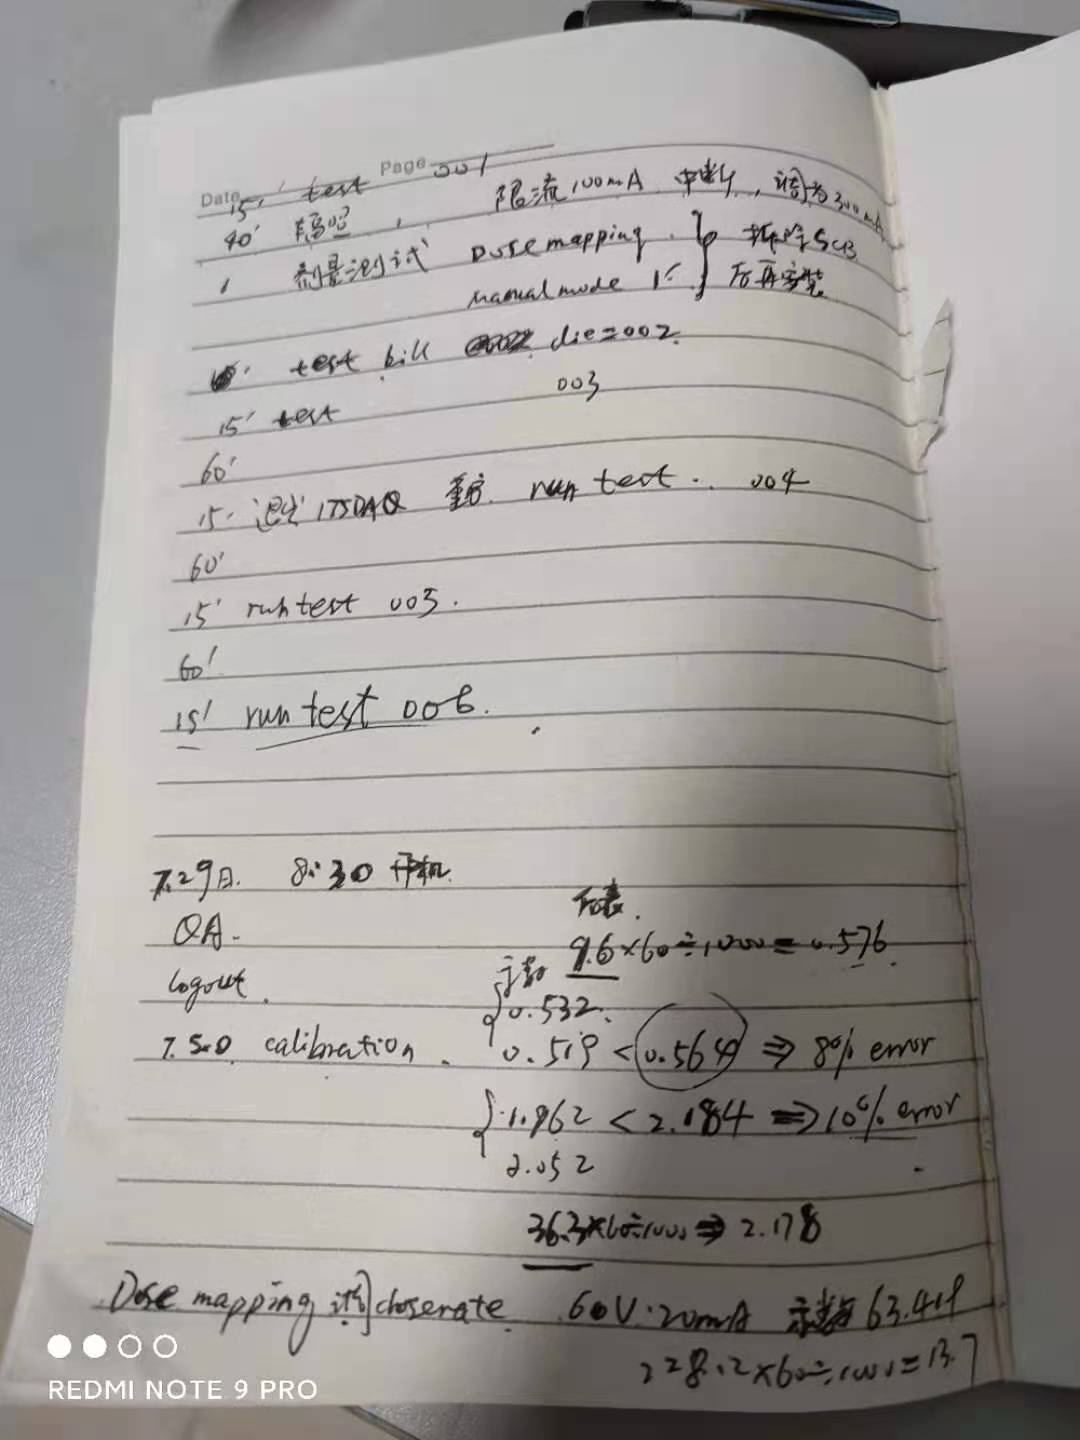 Date Page 001
15' test
40' 辐照, 限流100mA 中断, 调为300mA
剂量测试 Dose mapping. 拆除SCB
manual mode 后再安装
test bill die=002.
15' test 003
60'
15. 退出ITSDAQ run test. 004
60'
15' run test 005.
60'
15' run test 006.
7.29日. 8:30 开机.
QA.
9.6×60÷1000=0.576
logout. 0.532.
calibration. 0.519 < 0.564 ⇒ 8% error
1.962 < 2.184 ⇒ 10% error
2.052
36.3×60÷1000 ⇒ 2.178
Dose mapping 60V.20mA 示数 63.419
228.2×60÷1000=13.7
REDMI NOTE 9 PRO